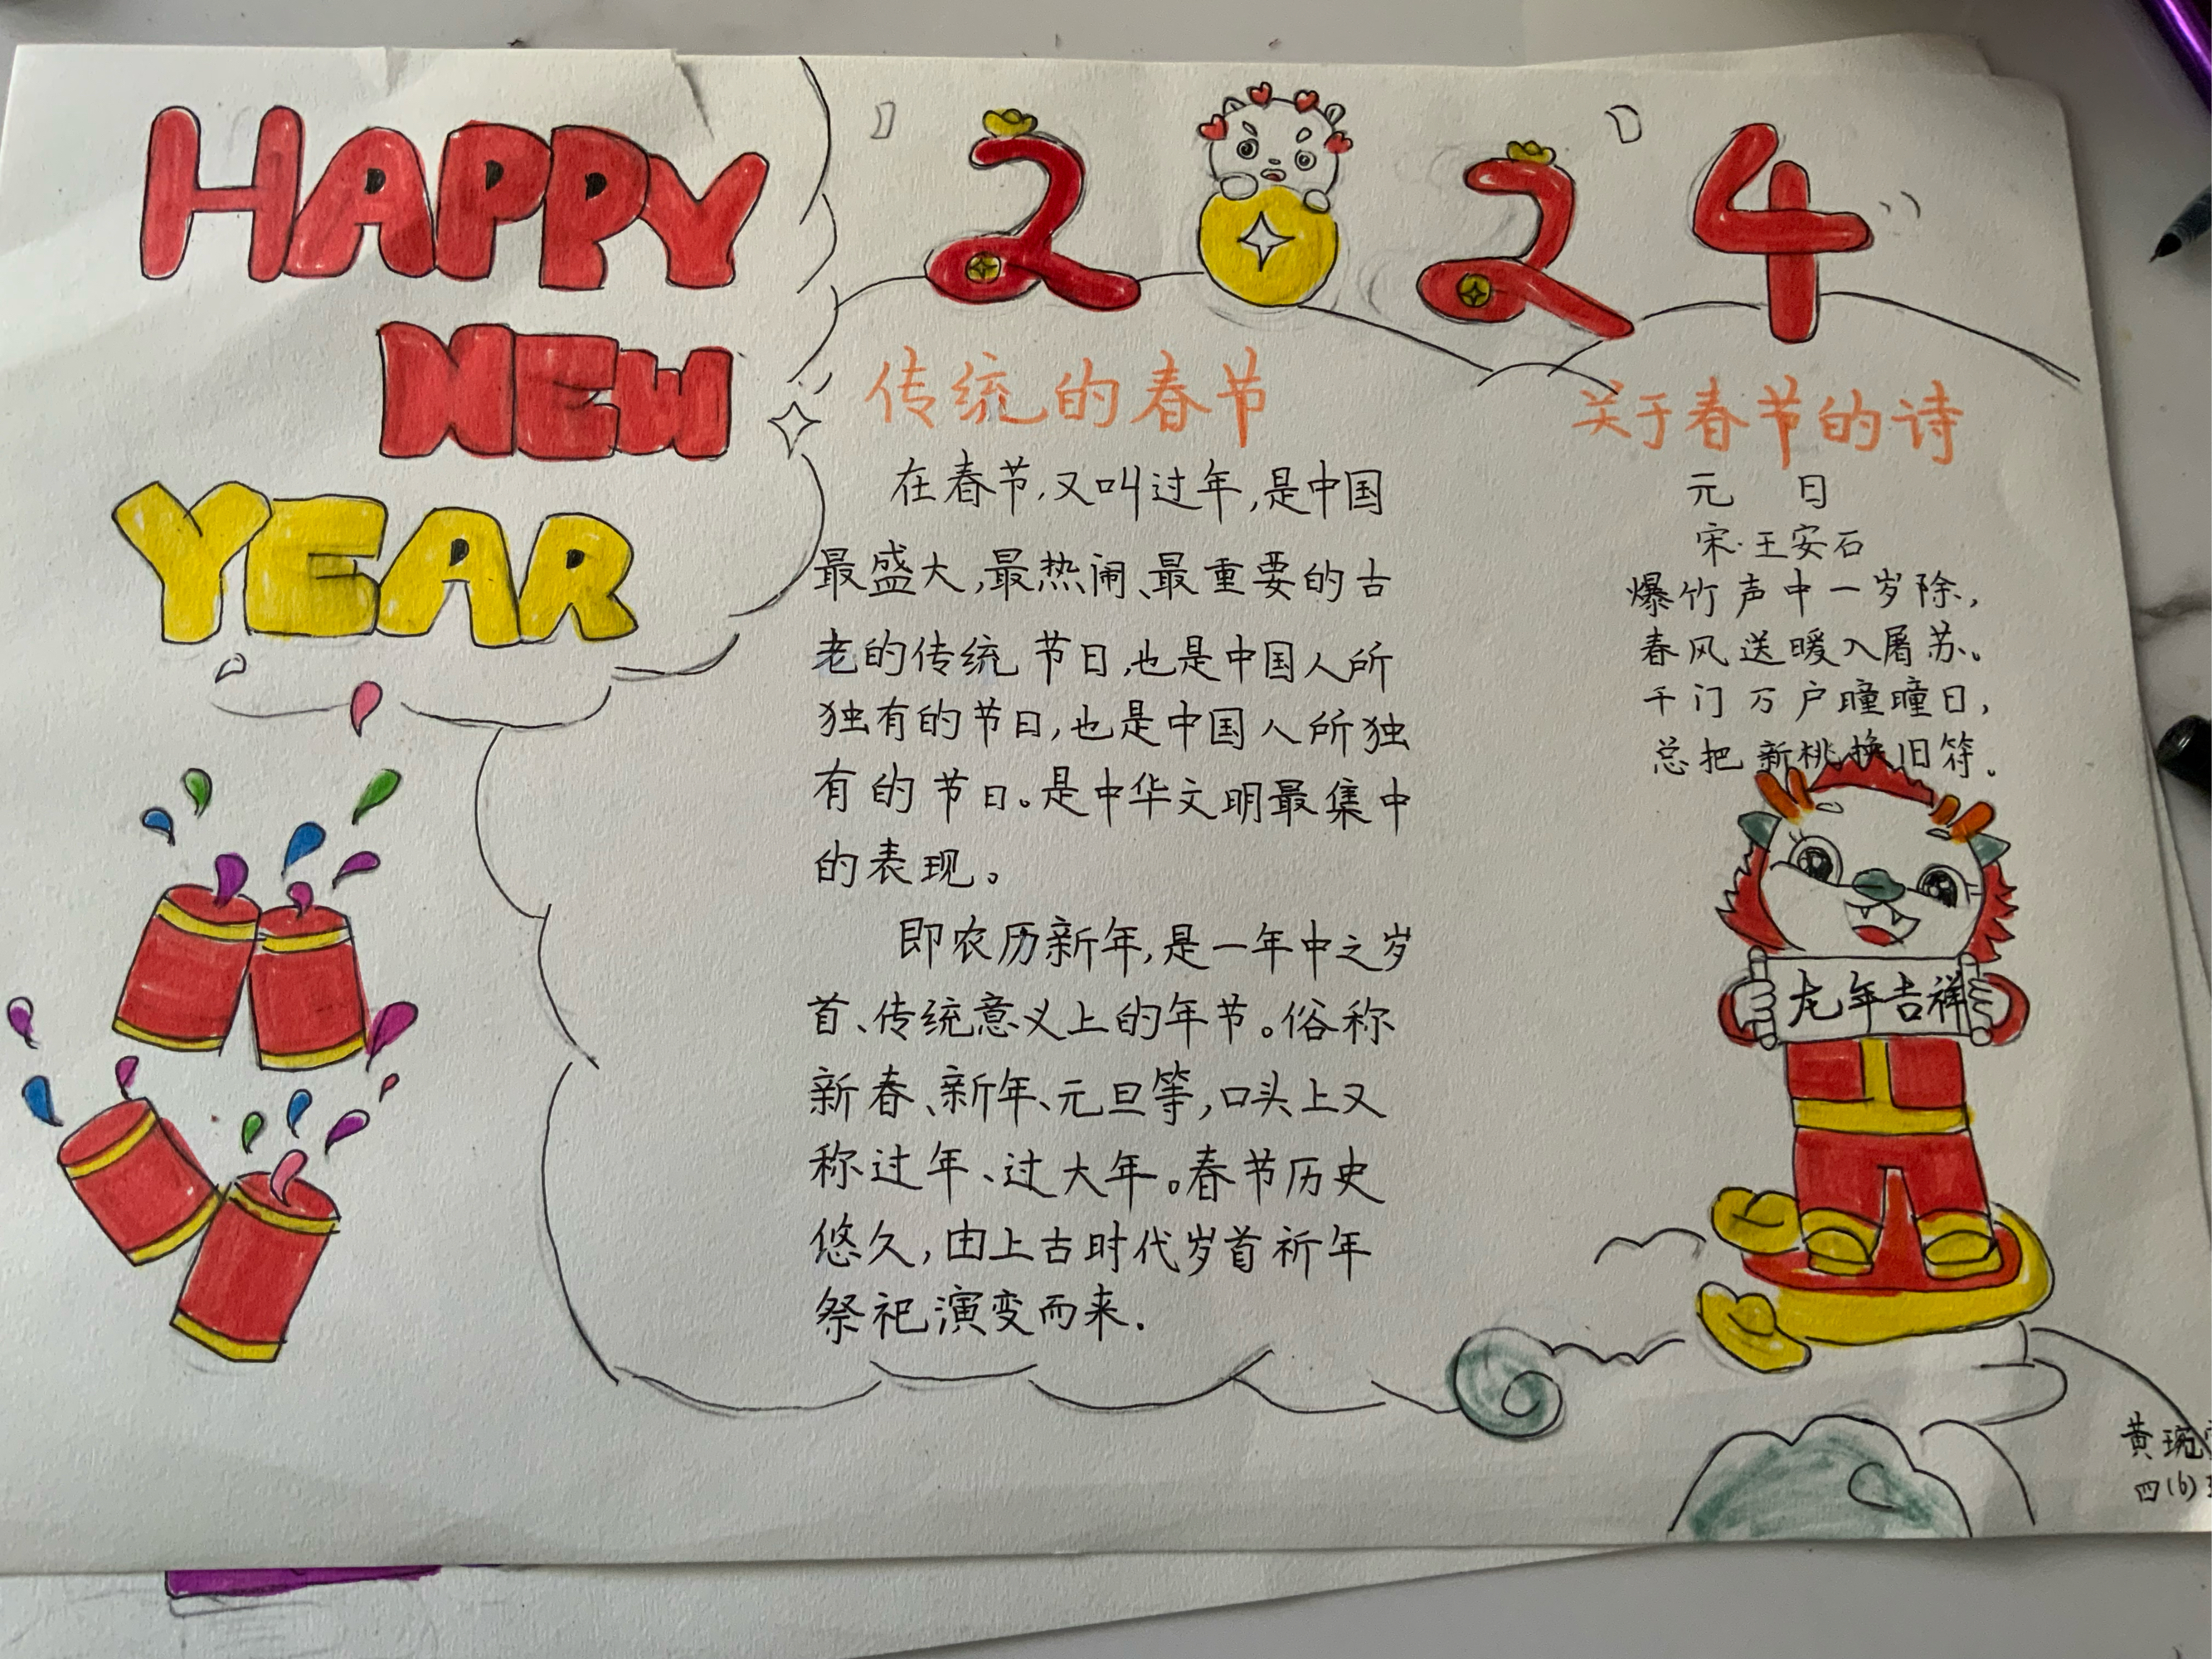 HAPPY
NEW
YEAR
2024
传统的春节
在春节,又叫过年,是中国
最盛大,最热闹、最重要的古
老的传统节日,也是中国人所
独有的节日,也是中国人所独
有的节日。是中华文明最集中
的表现。
即农历新年,是一年中之岁
首、传统意义上的年节。俗称
新春、新年、元旦等,口头上又
称过年、过大年。春节历史
悠久,由上古时代岁首祈年
祭祀演变而来.
关于春节的诗
元 日
宋·王安石
爆竹声中一岁除,
春风送暖入屠苏。
千门万户瞳瞳日,
总把新桃换旧符。
龙年吉祥
黄琬
四(6)